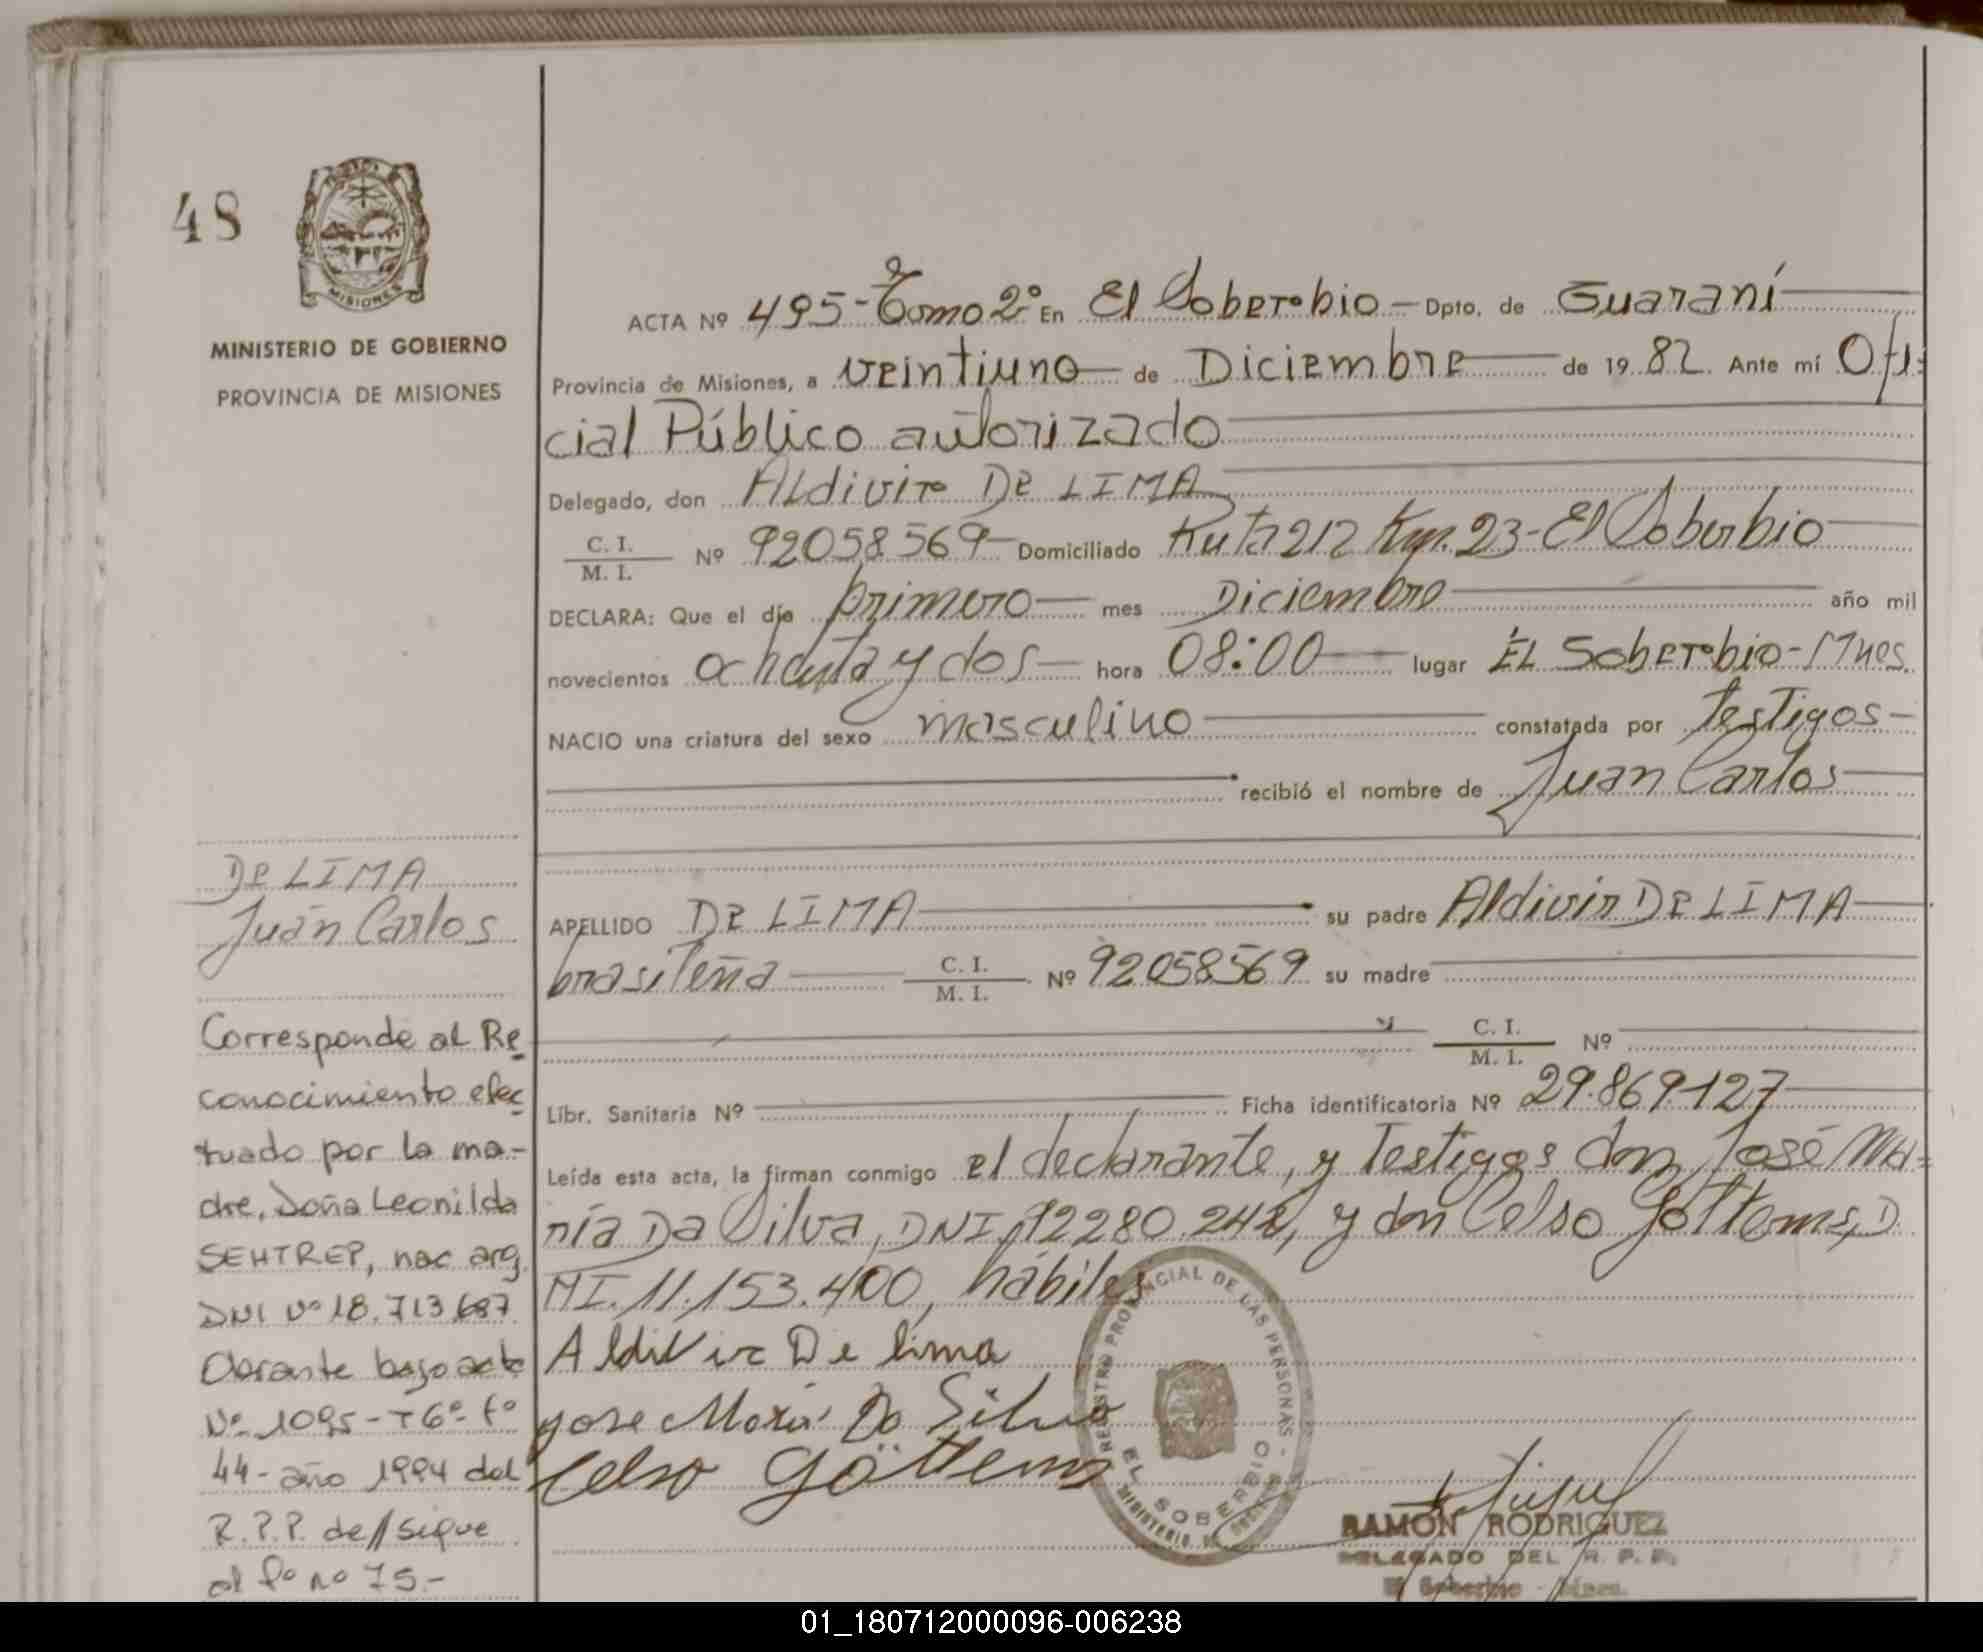 48
MISIONES
MINISTERIO DE GOBIERNO
PROVINCIA DE MISIONES
ACTA Nº 495- Tomo 2º En El Soberbio - Dpto. de Guaraní
Provincia de Misiones, a veintiuno de Diciembre de 19 82 Ante mí Ofi-
cial Público autorizado
Delegado, don Aldivir DE LIMA
C. I.
M. I. Nº 92058569 Domiciliado Ruta 212 Km. 23 - El Soberbio
DECLARA: Que el día primero mes Diciembre año mil
novecientos ochenta y dos hora 08:00 lugar EL Soberbio - Mnes.
NACIO una criatura del sexo masculino constatada por Testigos -
recibió el nombre de Juan Carlos
DE LIMA
Juan Carlos
APELLIDO DE LIMA su padre Aldivir DE LIMA
brasileña C. I.
M. I. Nº 92058569 su madre
C. I.
M. I. Nº
Libr. Sanitaria Nº Ficha identificatoria Nº 29.869.127
Leída esta acta, la firman conmigo el declarante, y Testigos don José Ma-
ría Da Silva, DNI. 92280.242, y don Celso Gottems, D.
NI. 11.153.400, hábiles
Aldivir De lima
jose Maria Da Silva
Celso Göttems
Corresponde al Re
conocimiento efec
tuado por la ma-
dre, Doña Leonilda
SEHTREP, nac arg.
DNI Nº 18.713.687
Obrante bajo acta
Nº 1095 - T 6º - fº
44 - año 1994 del
R.P.P. de // sigue
al fº nº 75.-
REGISTRO PROVINCIAL DE LAS PERSONAS -
EL SOBERBIO
MINISTERIO DE
RAMON RODRIGUEZ
DELEGADO DEL R. P. P.
El Soberbio - Mnes.
01_180712000096-006238